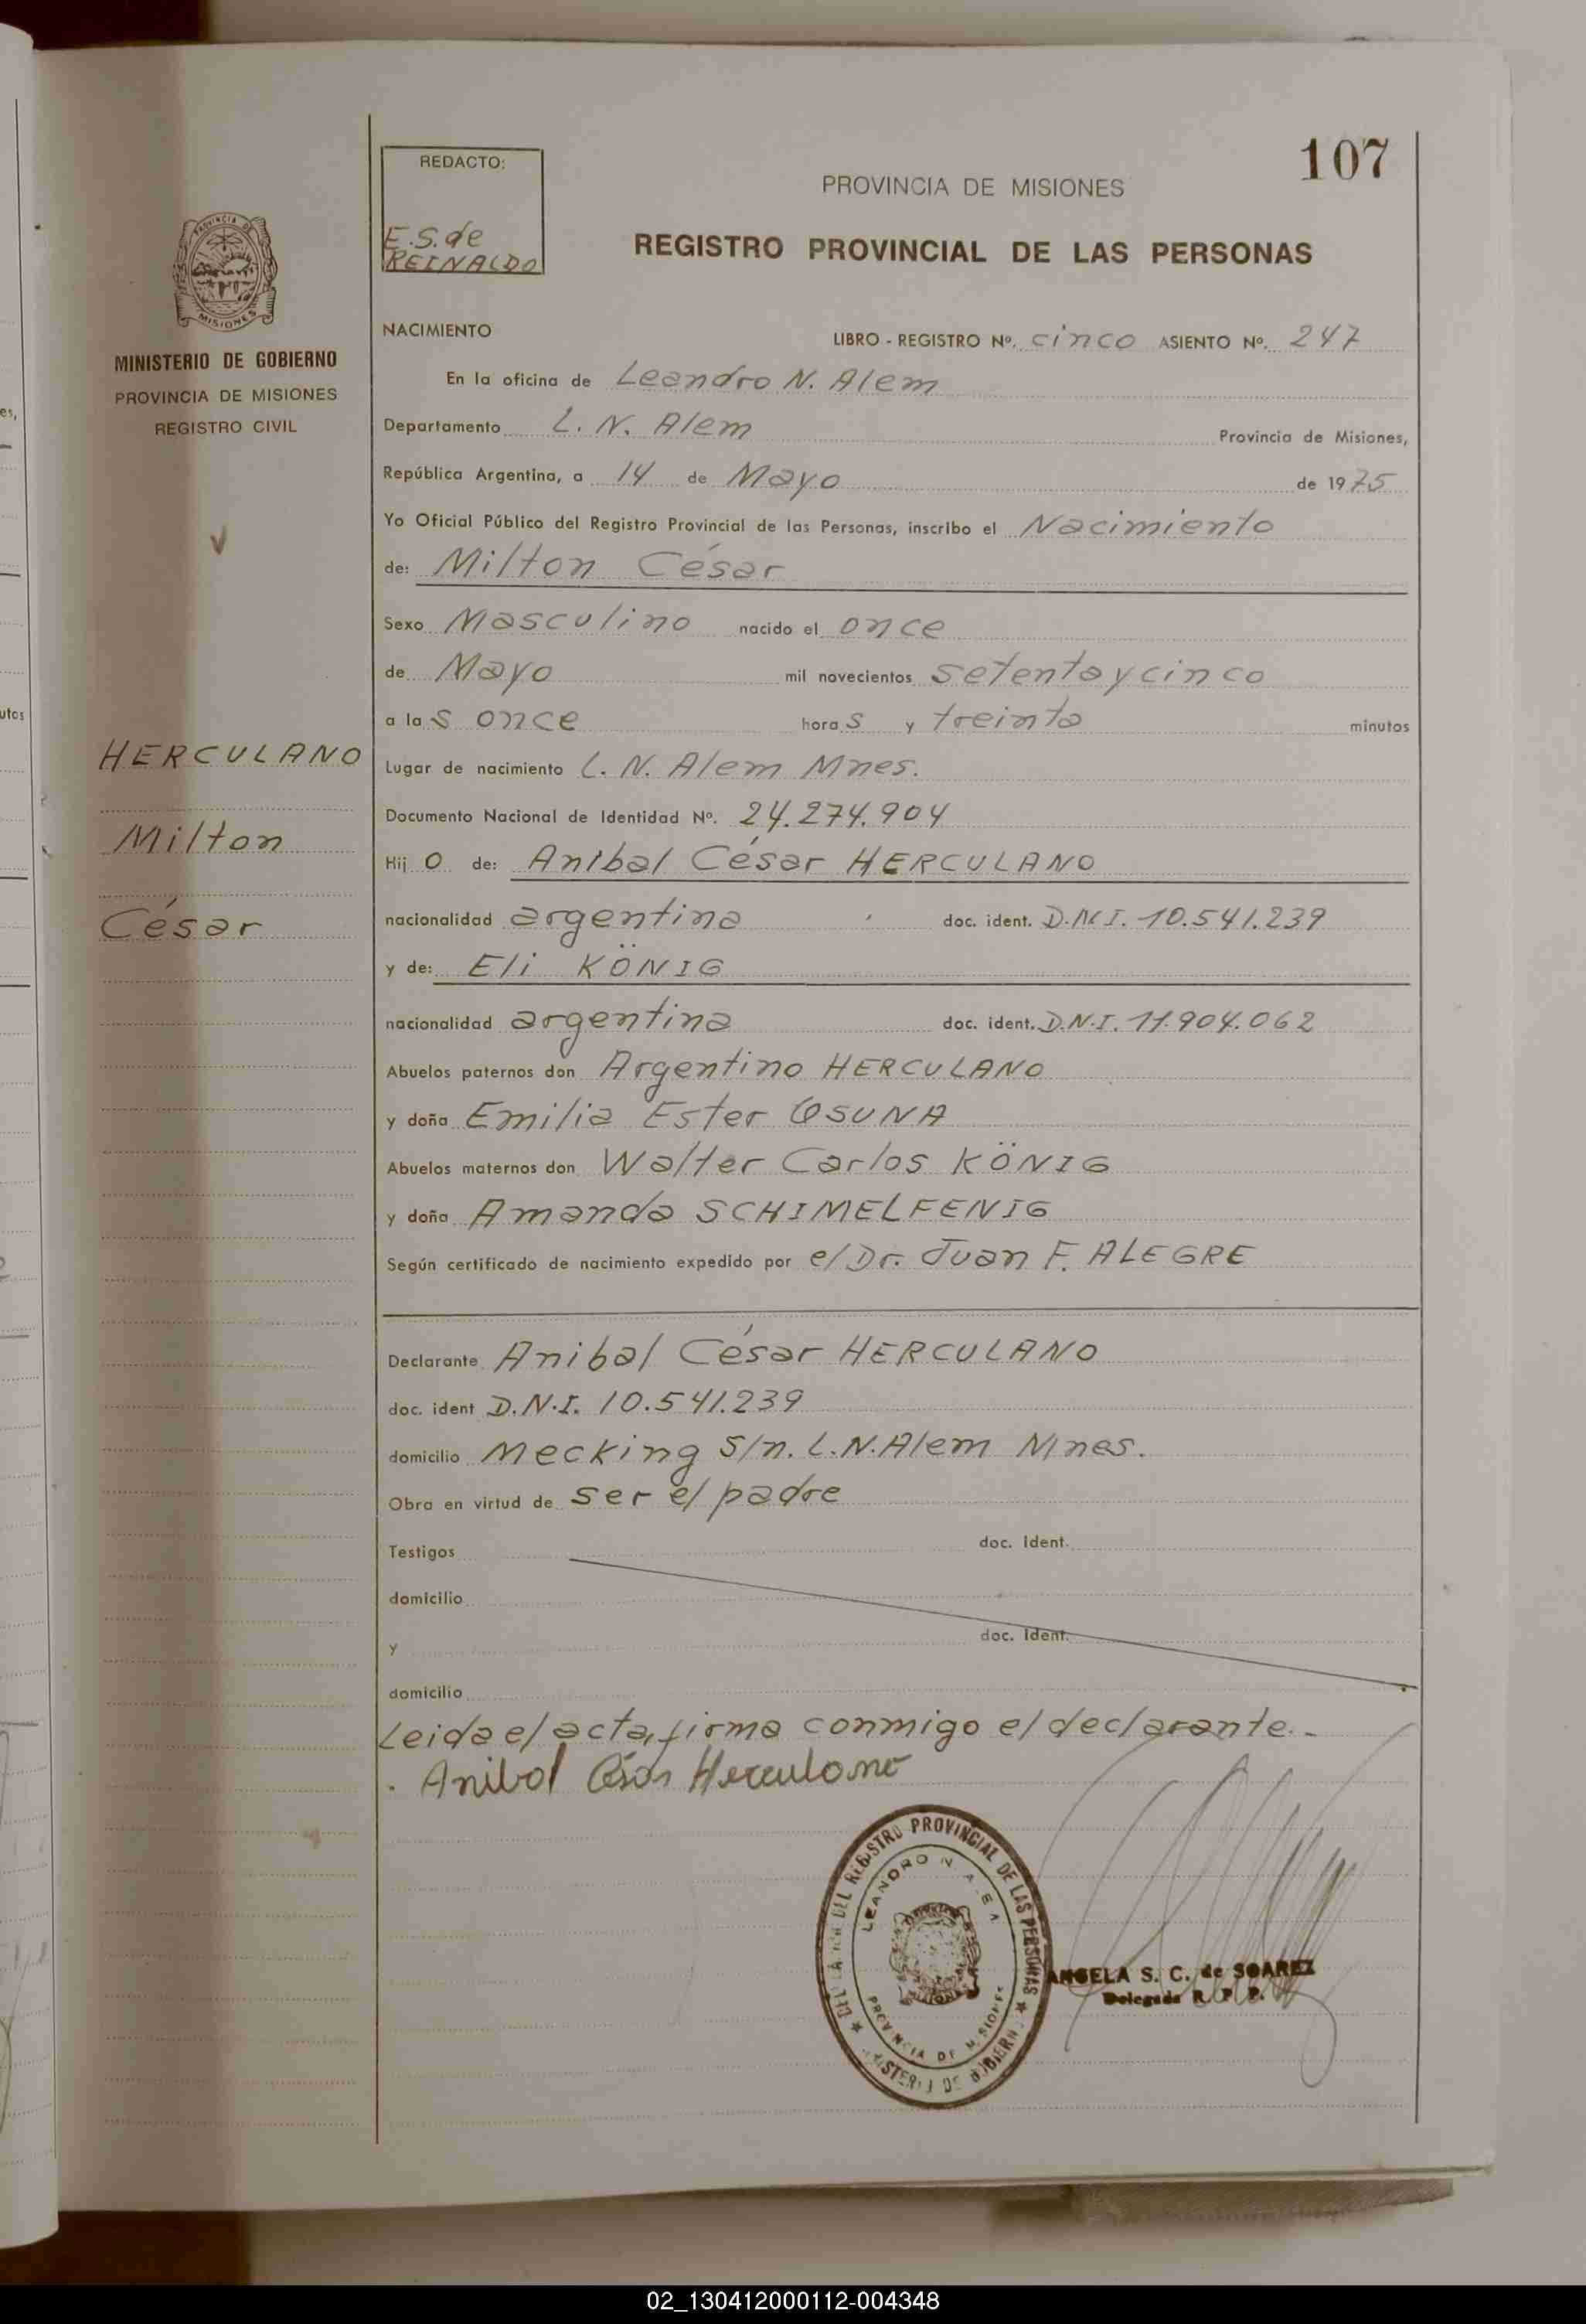 107
REDACTO:
E.S. de
REINALDO
PROVINCIA DE MISIONES
REGISTRO PROVINCIAL DE LAS PERSONAS
PROVINCIA DE
MISIONES
MINISTERIO DE GOBIERNO
PROVINCIA DE MISIONES
REGISTRO CIVIL
HERCULANO
Milton
César
NACIMIENTO LIBRO - REGISTRO Nº. cinco ASIENTO Nº. 247
En la oficina de Leandro N. Alem
Departamento L. N. Alem Provincia de Misiones,
República Argentina, a 14 de Mayo de 1975
Yo Oficial Público del Registro Provincial de las Personas, inscribo el Nacimiento
de: Milton César
Sexo Masculino nacido el once
de Mayo mil novecientos setenta y cinco
a las once horas y treinta minutos
Lugar de nacimiento L. N. Alem Mnes.
Documento Nacional de Identidad Nº. 24.274.904
Hijo de: Anibal César HERCULANO
nacionalidad argentina doc. ident. D.N.I. 10.541.239
y de: Eli KÖNIG
nacionalidad argentina doc. ident. D.N.I. 11.904.062
Abuelos paternos don Argentino HERCULANO
y doña Emilia Ester OSUNA
Abuelos maternos don Walter Carlos KÖNIG
y doña Amanda SCHIMELFENIG
Según certificado de nacimiento expedido por el Dr. Juan F. ALEGRE
Declarante Anibal César HERCULANO
doc. ident D.N.I. 10.541.239
domicilio Mecking S/n. L.N. Alem Mnes.
Obra en virtud de ser el padre
Testigos doc. Ident.
domicilio
y doc. Ident.
domicilio
Leida el acta, firma conmigo el declarante.-
Anibal César Herculano
REGISTRO PROVINCIAL DE LAS PERSONAS
LEANDRO N. ALEM
PROVINCIA DE MISIONES
ANGELA S. C. de SOAREZ
Delegada R. P. P.
02_130412000112-004348